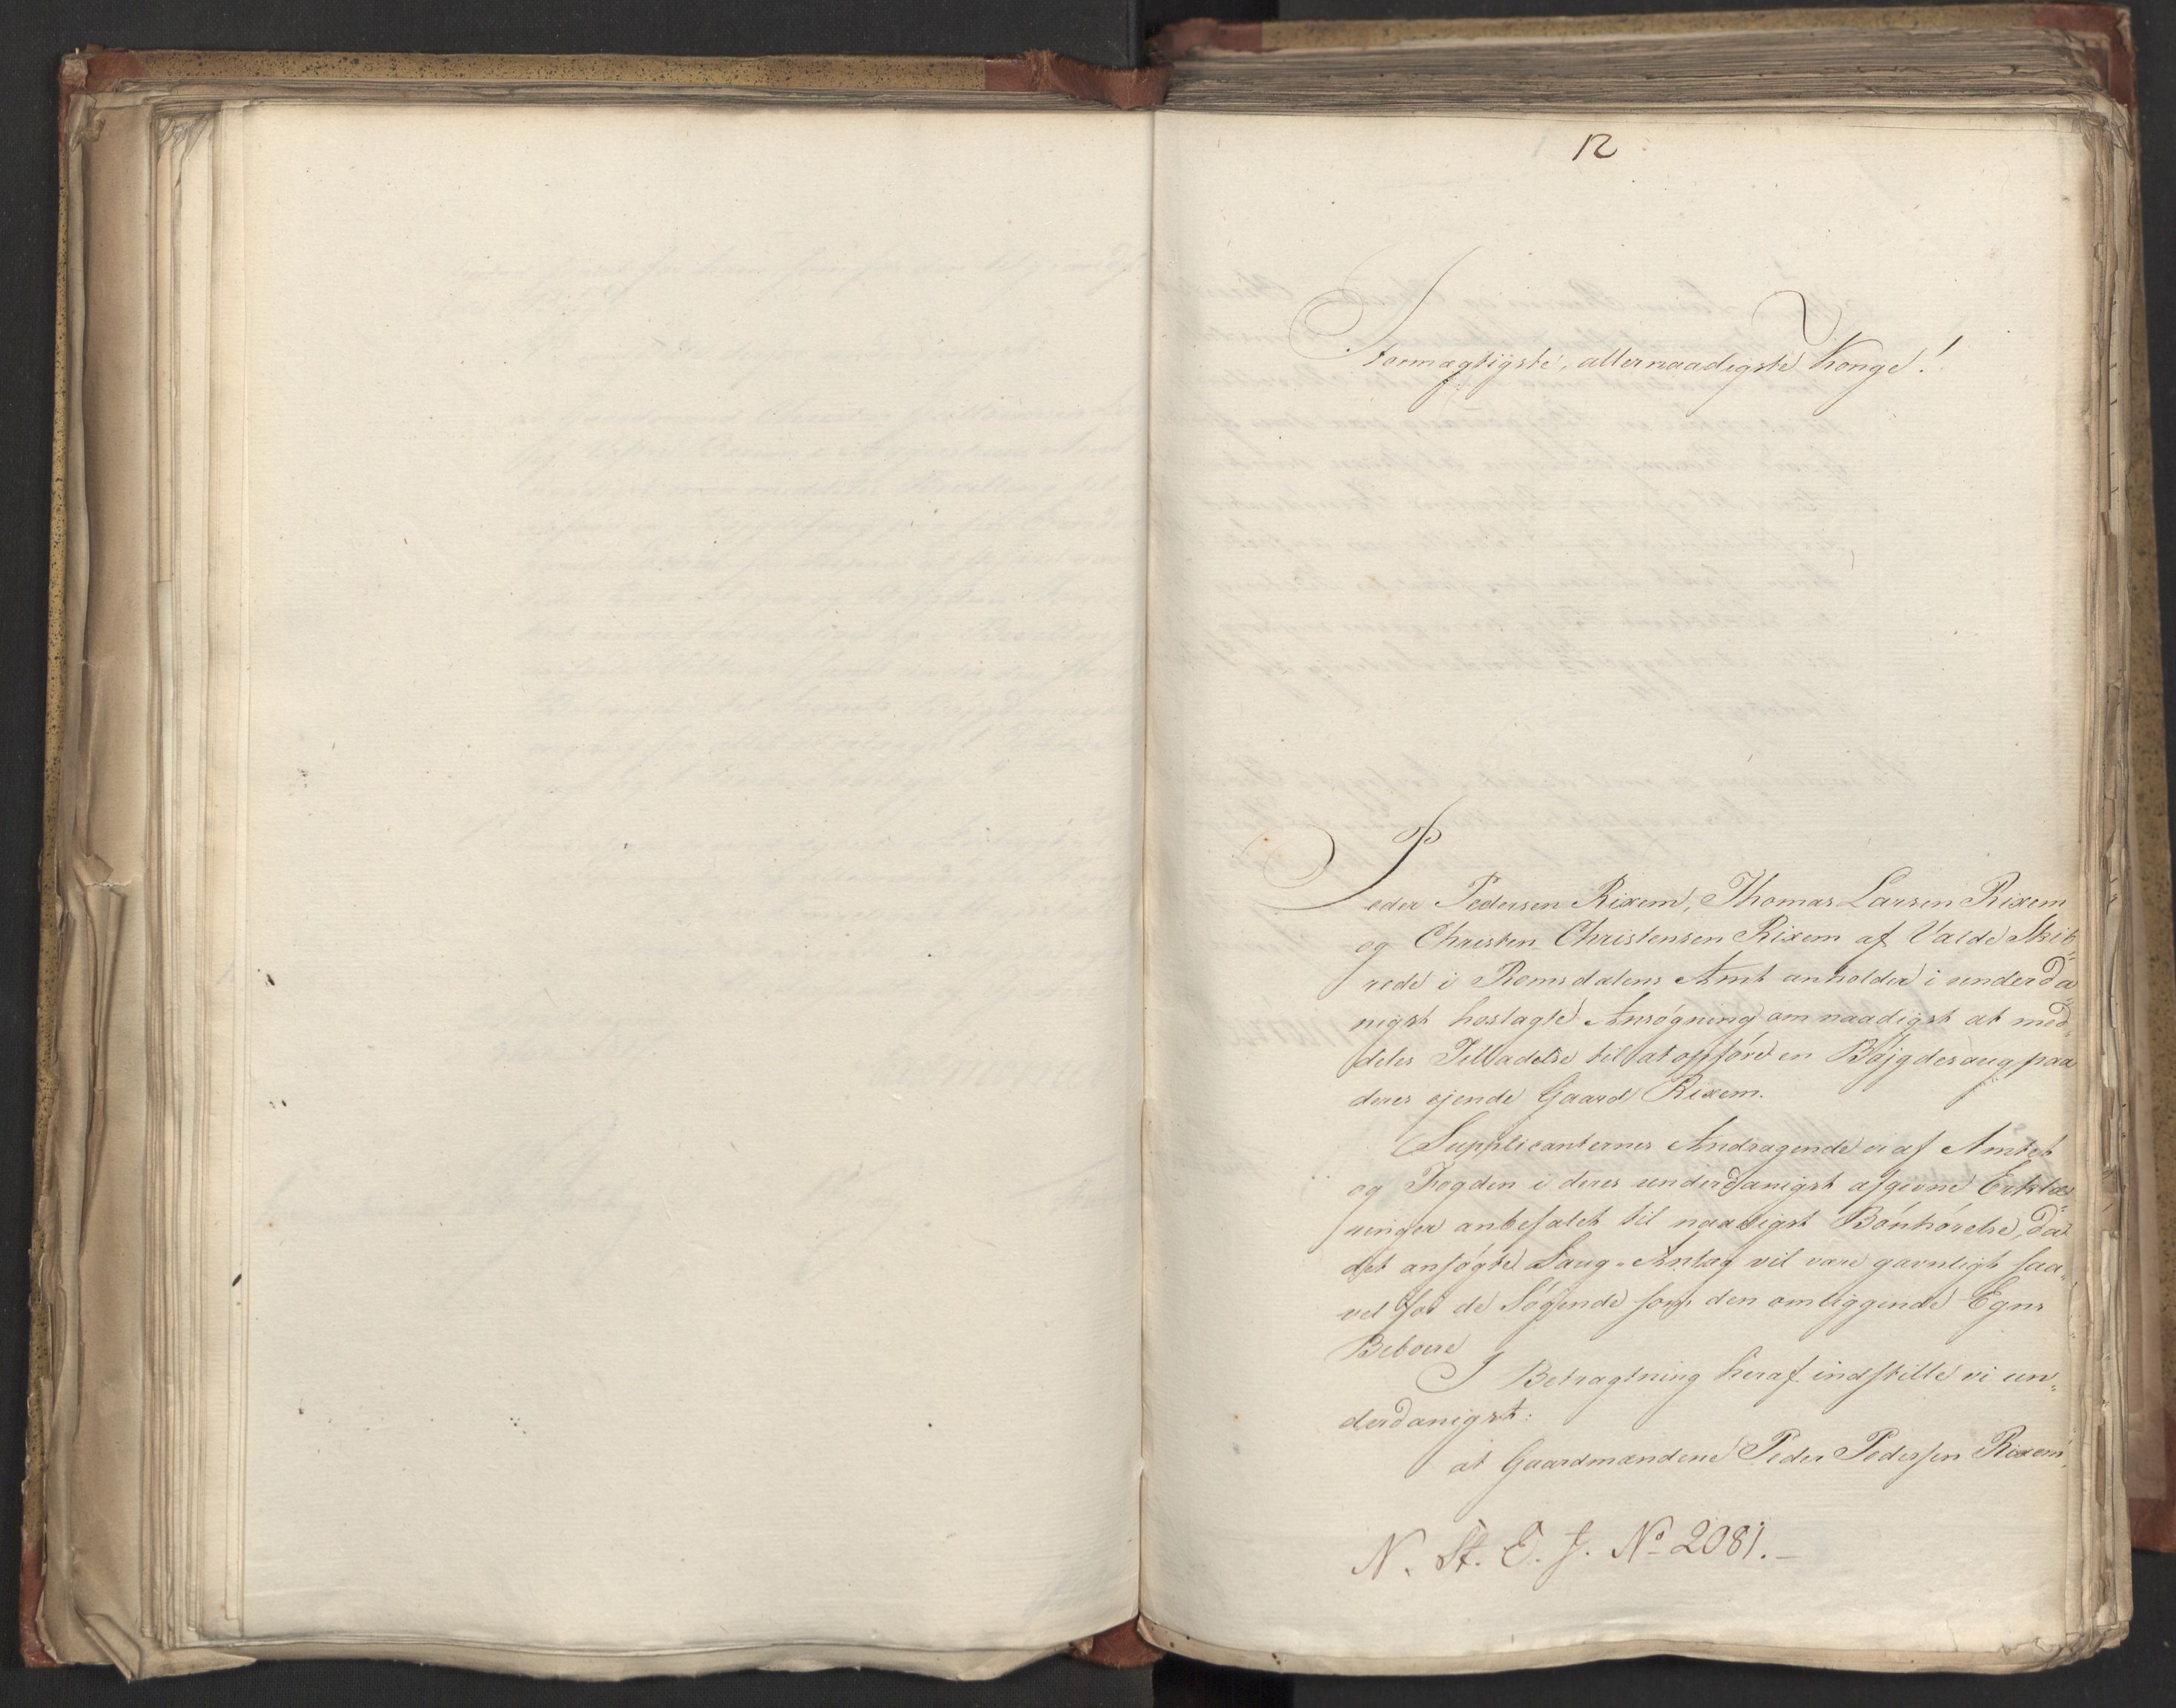 12
Stormægtigste, allernaadigste Konge!
Peder Pedersen Rixem, Thomas Larsen Rixem
og Christen Christensen Rixem af Valde Skib„
rede i Romsdalens Amt anholder i underda„
nigst hoslagte Ansøgning om naadigst at med„
deles Tilladelse til at opføre en Bøjgdesaug paa
deres ejende Gaard Rixem.
Supplicanternes Andragende er af Amtet
og Fogden i deres underdanigst afgivne Erklæ„
ringer anbefalet til naadigst Bönhörelse, da
det ansøgte Saug-Anlæg vil være gavnligt saa„
vel for de Søgende som den omliggende Egns
Beboere
I Betragtning heraf indstille vi un„
derdanigst:
at Gaardmændene Peder Pedersen Rixem,
N. St. E. J. No 2081.-